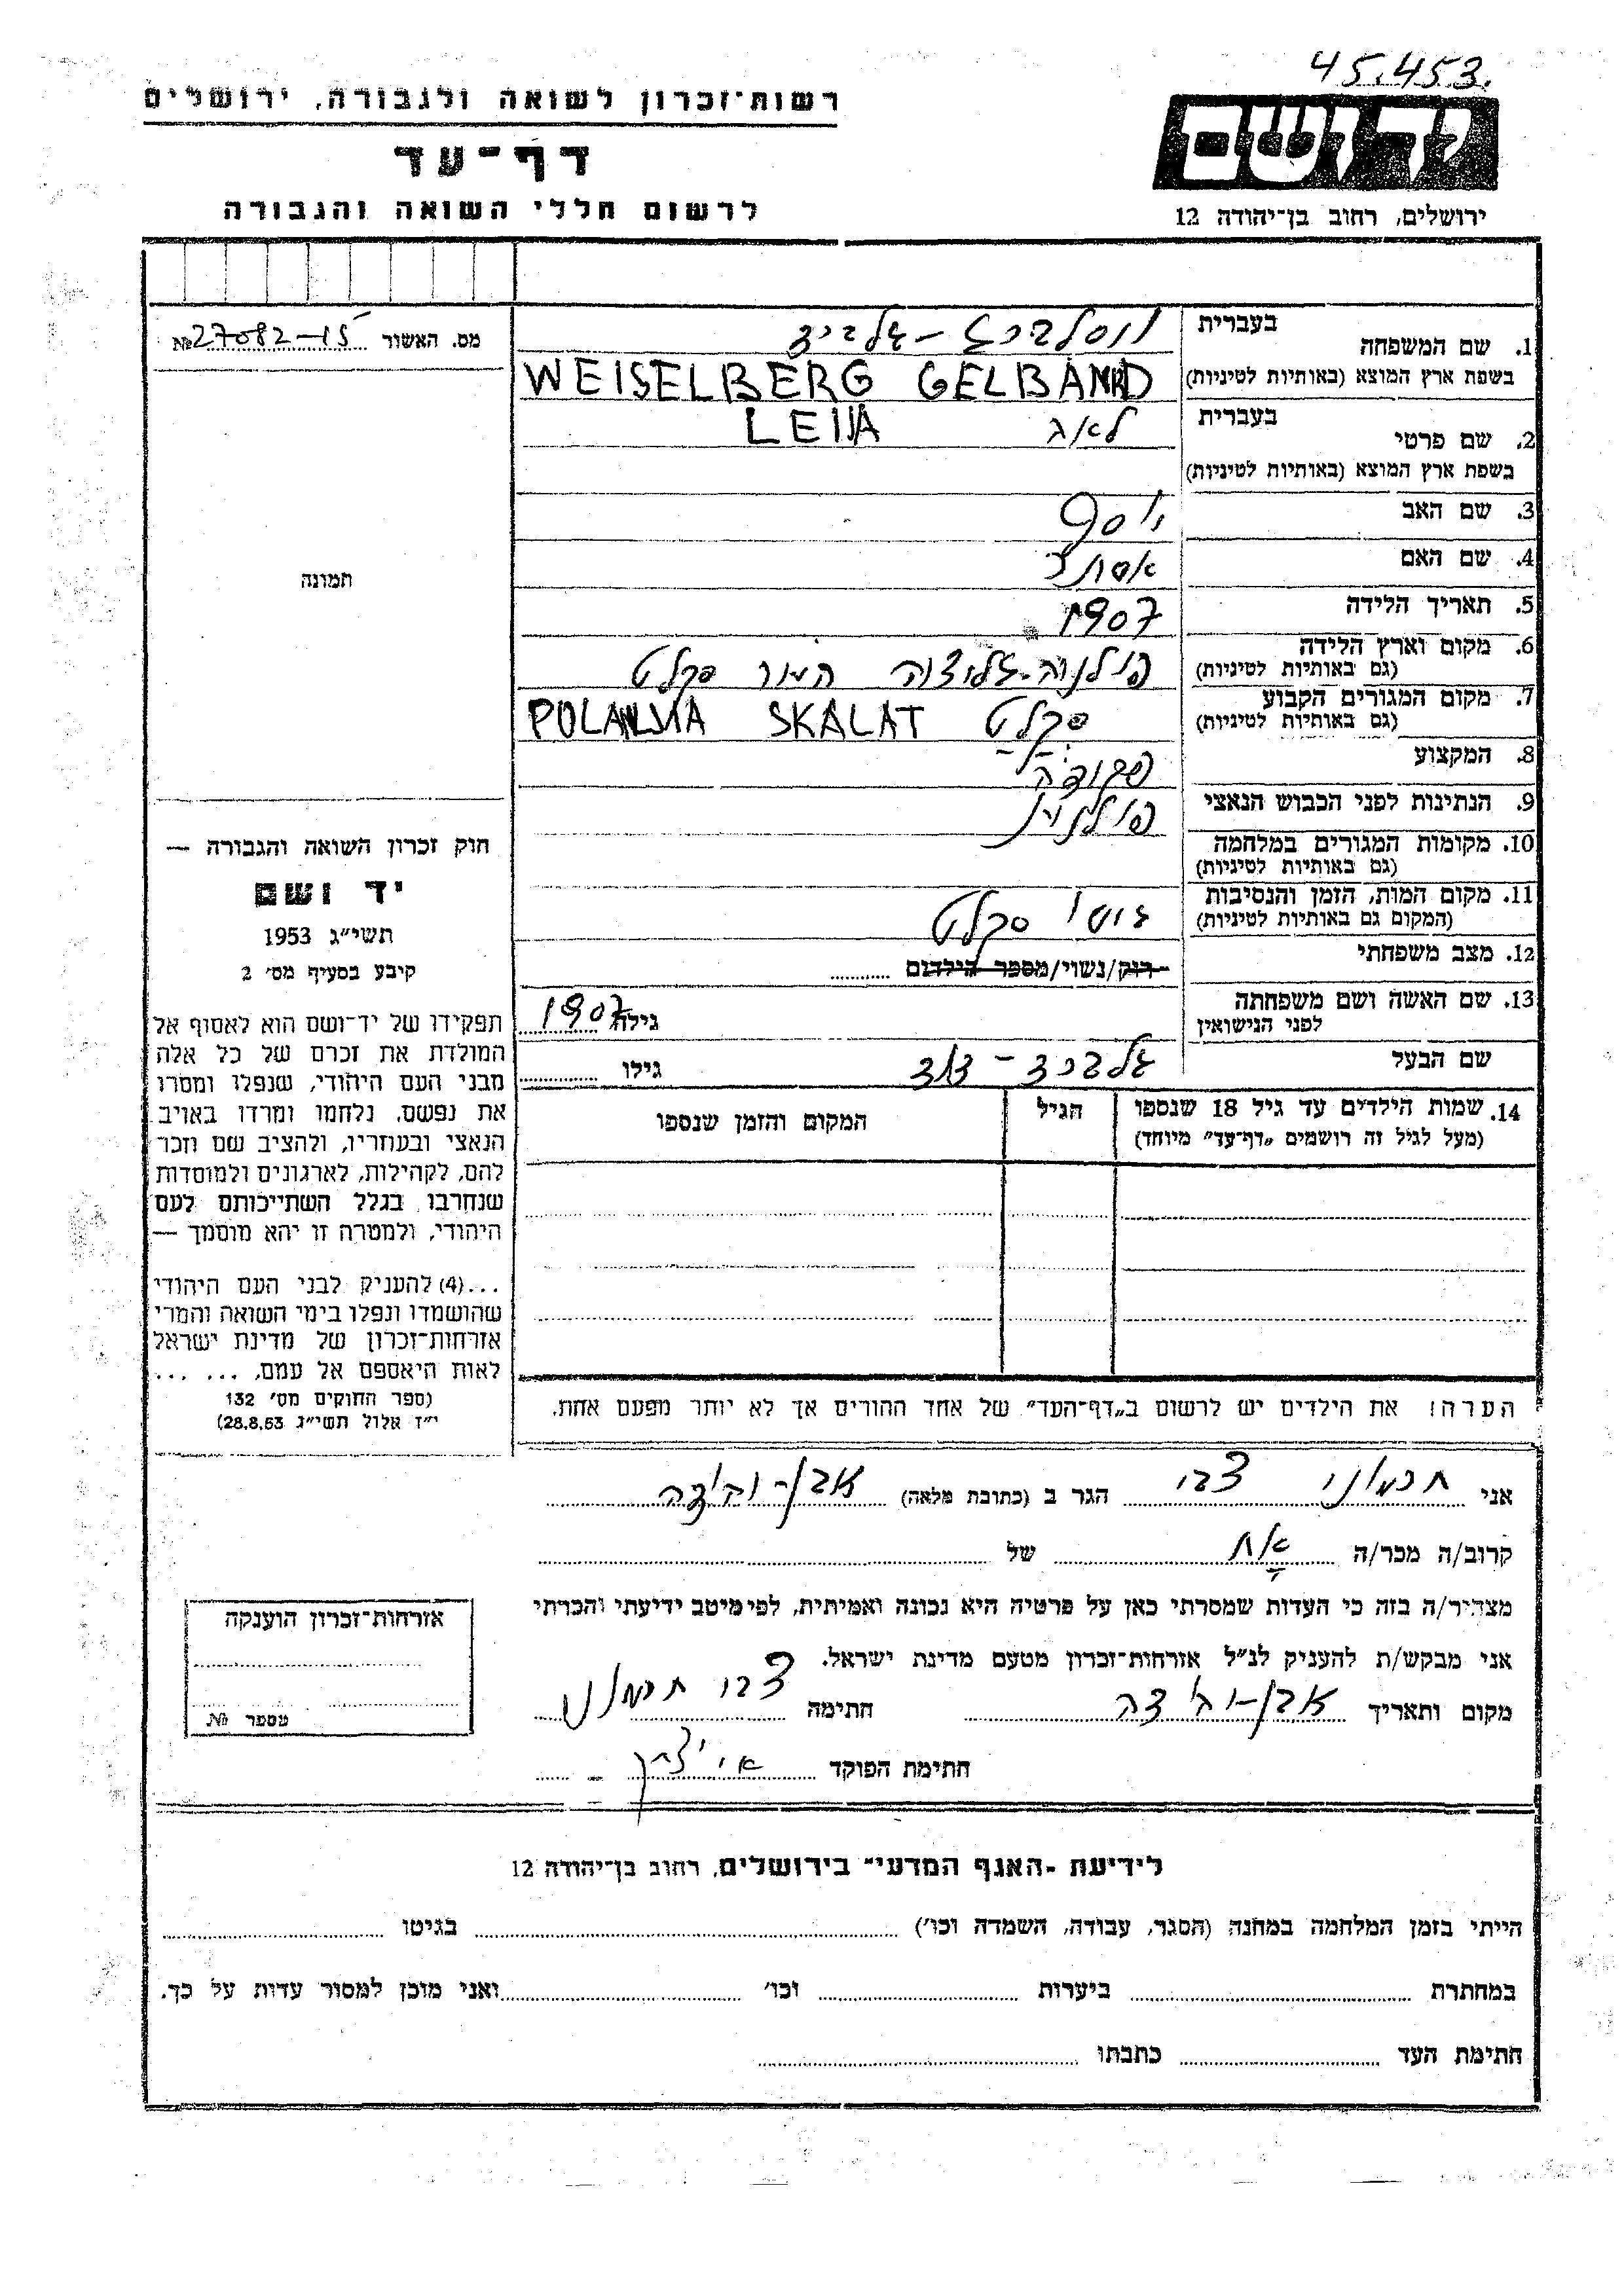 45.453.
רשות־זכרון לשואה ולגבורה, ירושלים
יד ושם
דף־עד
לרשום חללי השואה והגבורה
ירושלים, רחוב בן־יהודה 12
מס. האשור № 27082-15
1. שם המשפחה
בעברית
בשפת ארץ המוצא (באותיות לטיניות) WEISELBERG GELBAND
2. שם פרטי
בעברית לאה LEIJA
בשפת ארץ המוצא (באותיות לטיניות)
3. שם האב יוסף
4. שם האם אסתר
5. תאריך הלידה 1907
6. מקום וארץ הלידה
(גם באותיות לטיניות)
7. מקום המגורים הקבוע סקלט SKALAT
(גם באותיות לטיניות)
8. המקצוע
9. הנתינות לפני הכבוש הנאצי
10. מקומות המגורים במלחמה
(גם באותיות לטיניות)
11. מקום המות, הזמן והנסיבות גיטו סקלט
(המקום גם באותיות לטיניות)
12. מצב משפחתי רוק/נשוי/מספר הילדים
13. שם האשה ושם משפחתה
לפני הנישואין
גילה 1907
שם הבעל גלבנד - דוד גילו
14. שמות הילדים עד גיל 18 שנספו
(מעל לגיל זה רושמים „דף־עד" מיוחד)
הגיל
המקום והזמן שנספו
תמונה
חוק זכרון השואה והגבורה —
יד ושם
תשי״ג 1953
קיבע בסעיף מס׳ 2
תפקידו של יד־ושם הוא לאסוף אל
המולדת את זכרם של כל אלה
מבני העם היהודי, שנפלו ומסרו
את נפשם, נלחמו ומרדו באויב
הנאצי ובעוזריו, ולהציב שם וזכר
להם, לקהילות, לארגונים ולמוסדות
שנחרבו בגלל השתייכותם לעם
היהודי, ולמטרה זו יהא מוסמך —
...(4) להעניק לבני העם היהודי
שהושמדו ונפלו בימי השואה והמרי
אזרחות־זכרון של מדינת ישראל
לאות היאספם אל עמם. ... ...
(ספר החוקים מס׳ 132
י״ז אלול תשי״ג 28.8.53)
הערה! את הילדים יש לרשום ב„דף־העד" של אחד ההורים אך לא יותר מפעם אחת.
אני חכמוני צבי הגר ב (כתובת מלאה) אבן-יהודה
קרוב/ה מכר/ה אח של
מצהיר/ה בזה כי העדות שמסרתי כאן על פרטיה היא נכונה ואמיתית, לפי מיטב ידיעתי והכרתי
אני מבקש/ת להעניק לנ״ל אזרחות־זכרון מטעם מדינת ישראל.
מקום ותאריך אבן-יהודה חתימה צבי חכמוני
חתימת הפוקד
אזרחות־זכרון הוענקה
מספר №
לידיעת „האגף המדעי" בירושלים, רחוב בן־יהודה 12
הייתי בזמן המלחמה במחנה (הסגר, עבודה, השמדה וכו׳) בגיטו
במחתרת ביערות וכו׳ ואני מוכן למסור עדות על כך.
חתימת העד כתבתו